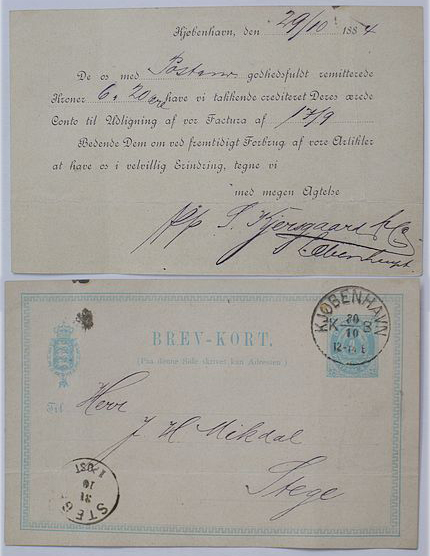 Kjøbenhavn, den 29/10 1884
De os med Postanv. godhedsfuldt remitterede
Kroner 6. 20 øre have vi takkende crediteret Deres ærede
Conto til Udligning af vor Factura af 17/9
Bedende Dem om ved fremtidigt Forbrug af vor Artikler
at have os i velvillig Erindring, tegne vi
med megen Agtelse
pp S. Kjersgaard & Co
KJØBENHAVN
30
K B
10
12-1 E
BREV-KORT.
(Paa denne Side skrives kun Adressen)
Til Herr
J H Mikdal
Stege
STEGE
31
10
1 POST